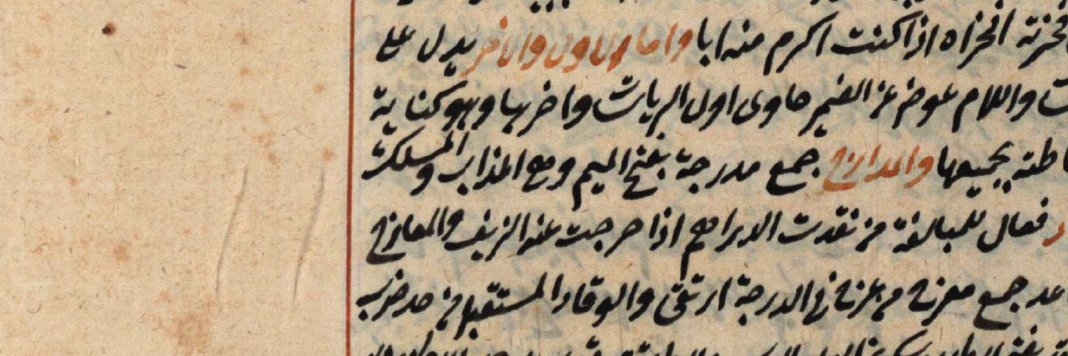 فخرته افخراه اذا كنت اكرم منه ابا واما الاول والاخر يدل على
واللام عوض عن الضمير حاوى اول الريات واخريها وهو كناية
بجميعها والمدارج جمع مدرجة بفتح الميم وهي المذاب والمسلك
فعال للمبالغة من نقدت الدراهم اذا خرجت عنه الزيف والمعارج
جمع معرج من عرج في الدرجة ارتقى والوقاد المستقبل من حد ضرب